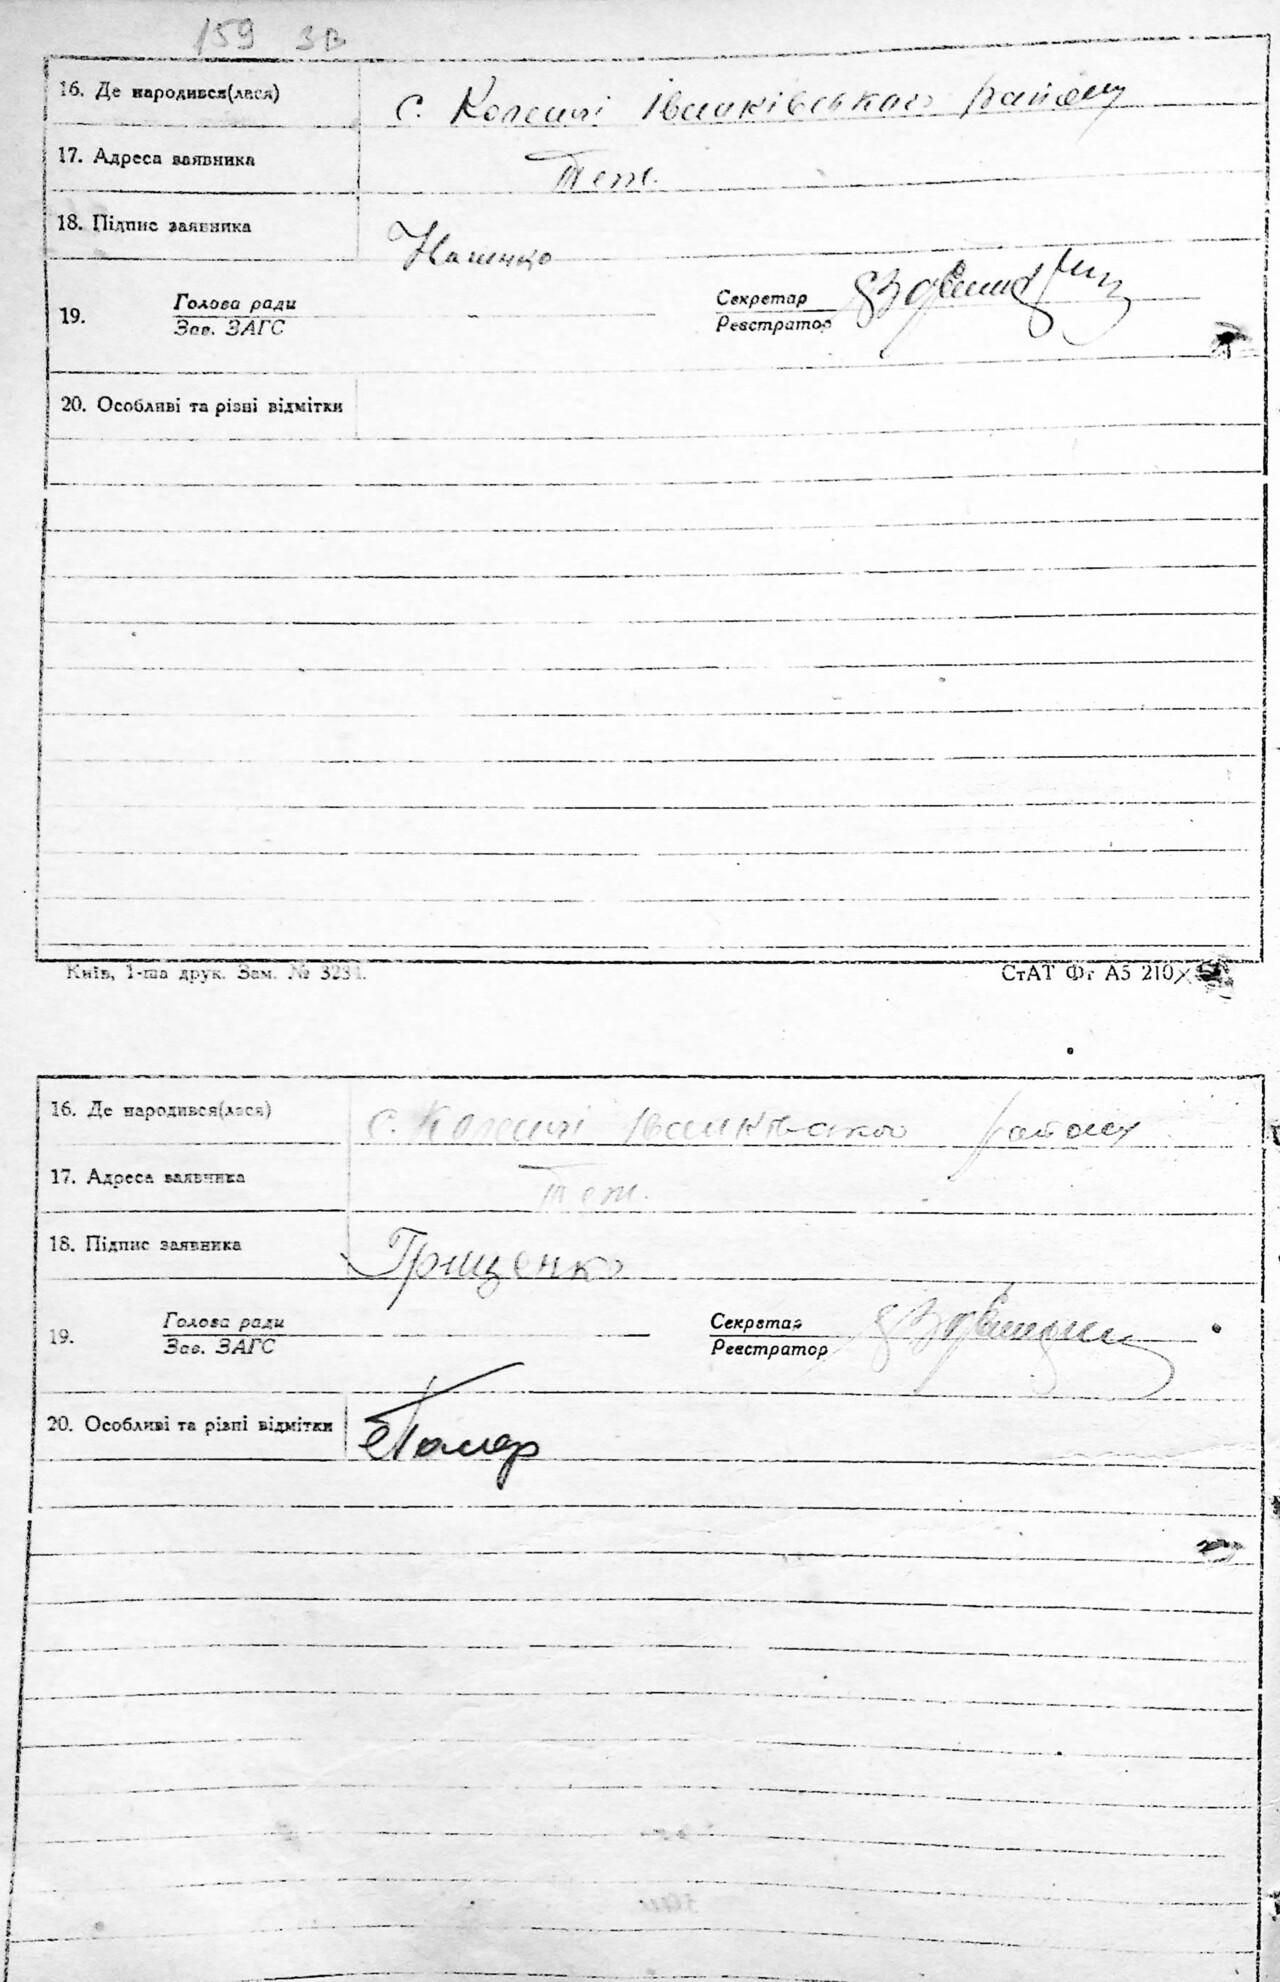 159 зв
16. Де народився(лася) с. Коленці Іванківського району
17. Адреса заявника Теж.
18. Підпис заявника
Голова ради Секретар
19.
Зав. ЗАГС Реєстратор
20. Особливі та різні відмітки
Київ, 1-ша друк. Зам. № 3234. СтАТ Фг А5 210×
16. Де народився(лася) с. Коленці Іванківського району
17. Адреса заявника Теж.
18. Підпис заявника Грищенко
Голова ради Секретар
19.
Зав. ЗАГС Реєстратор
20. Особливі та різні відмітки Помер